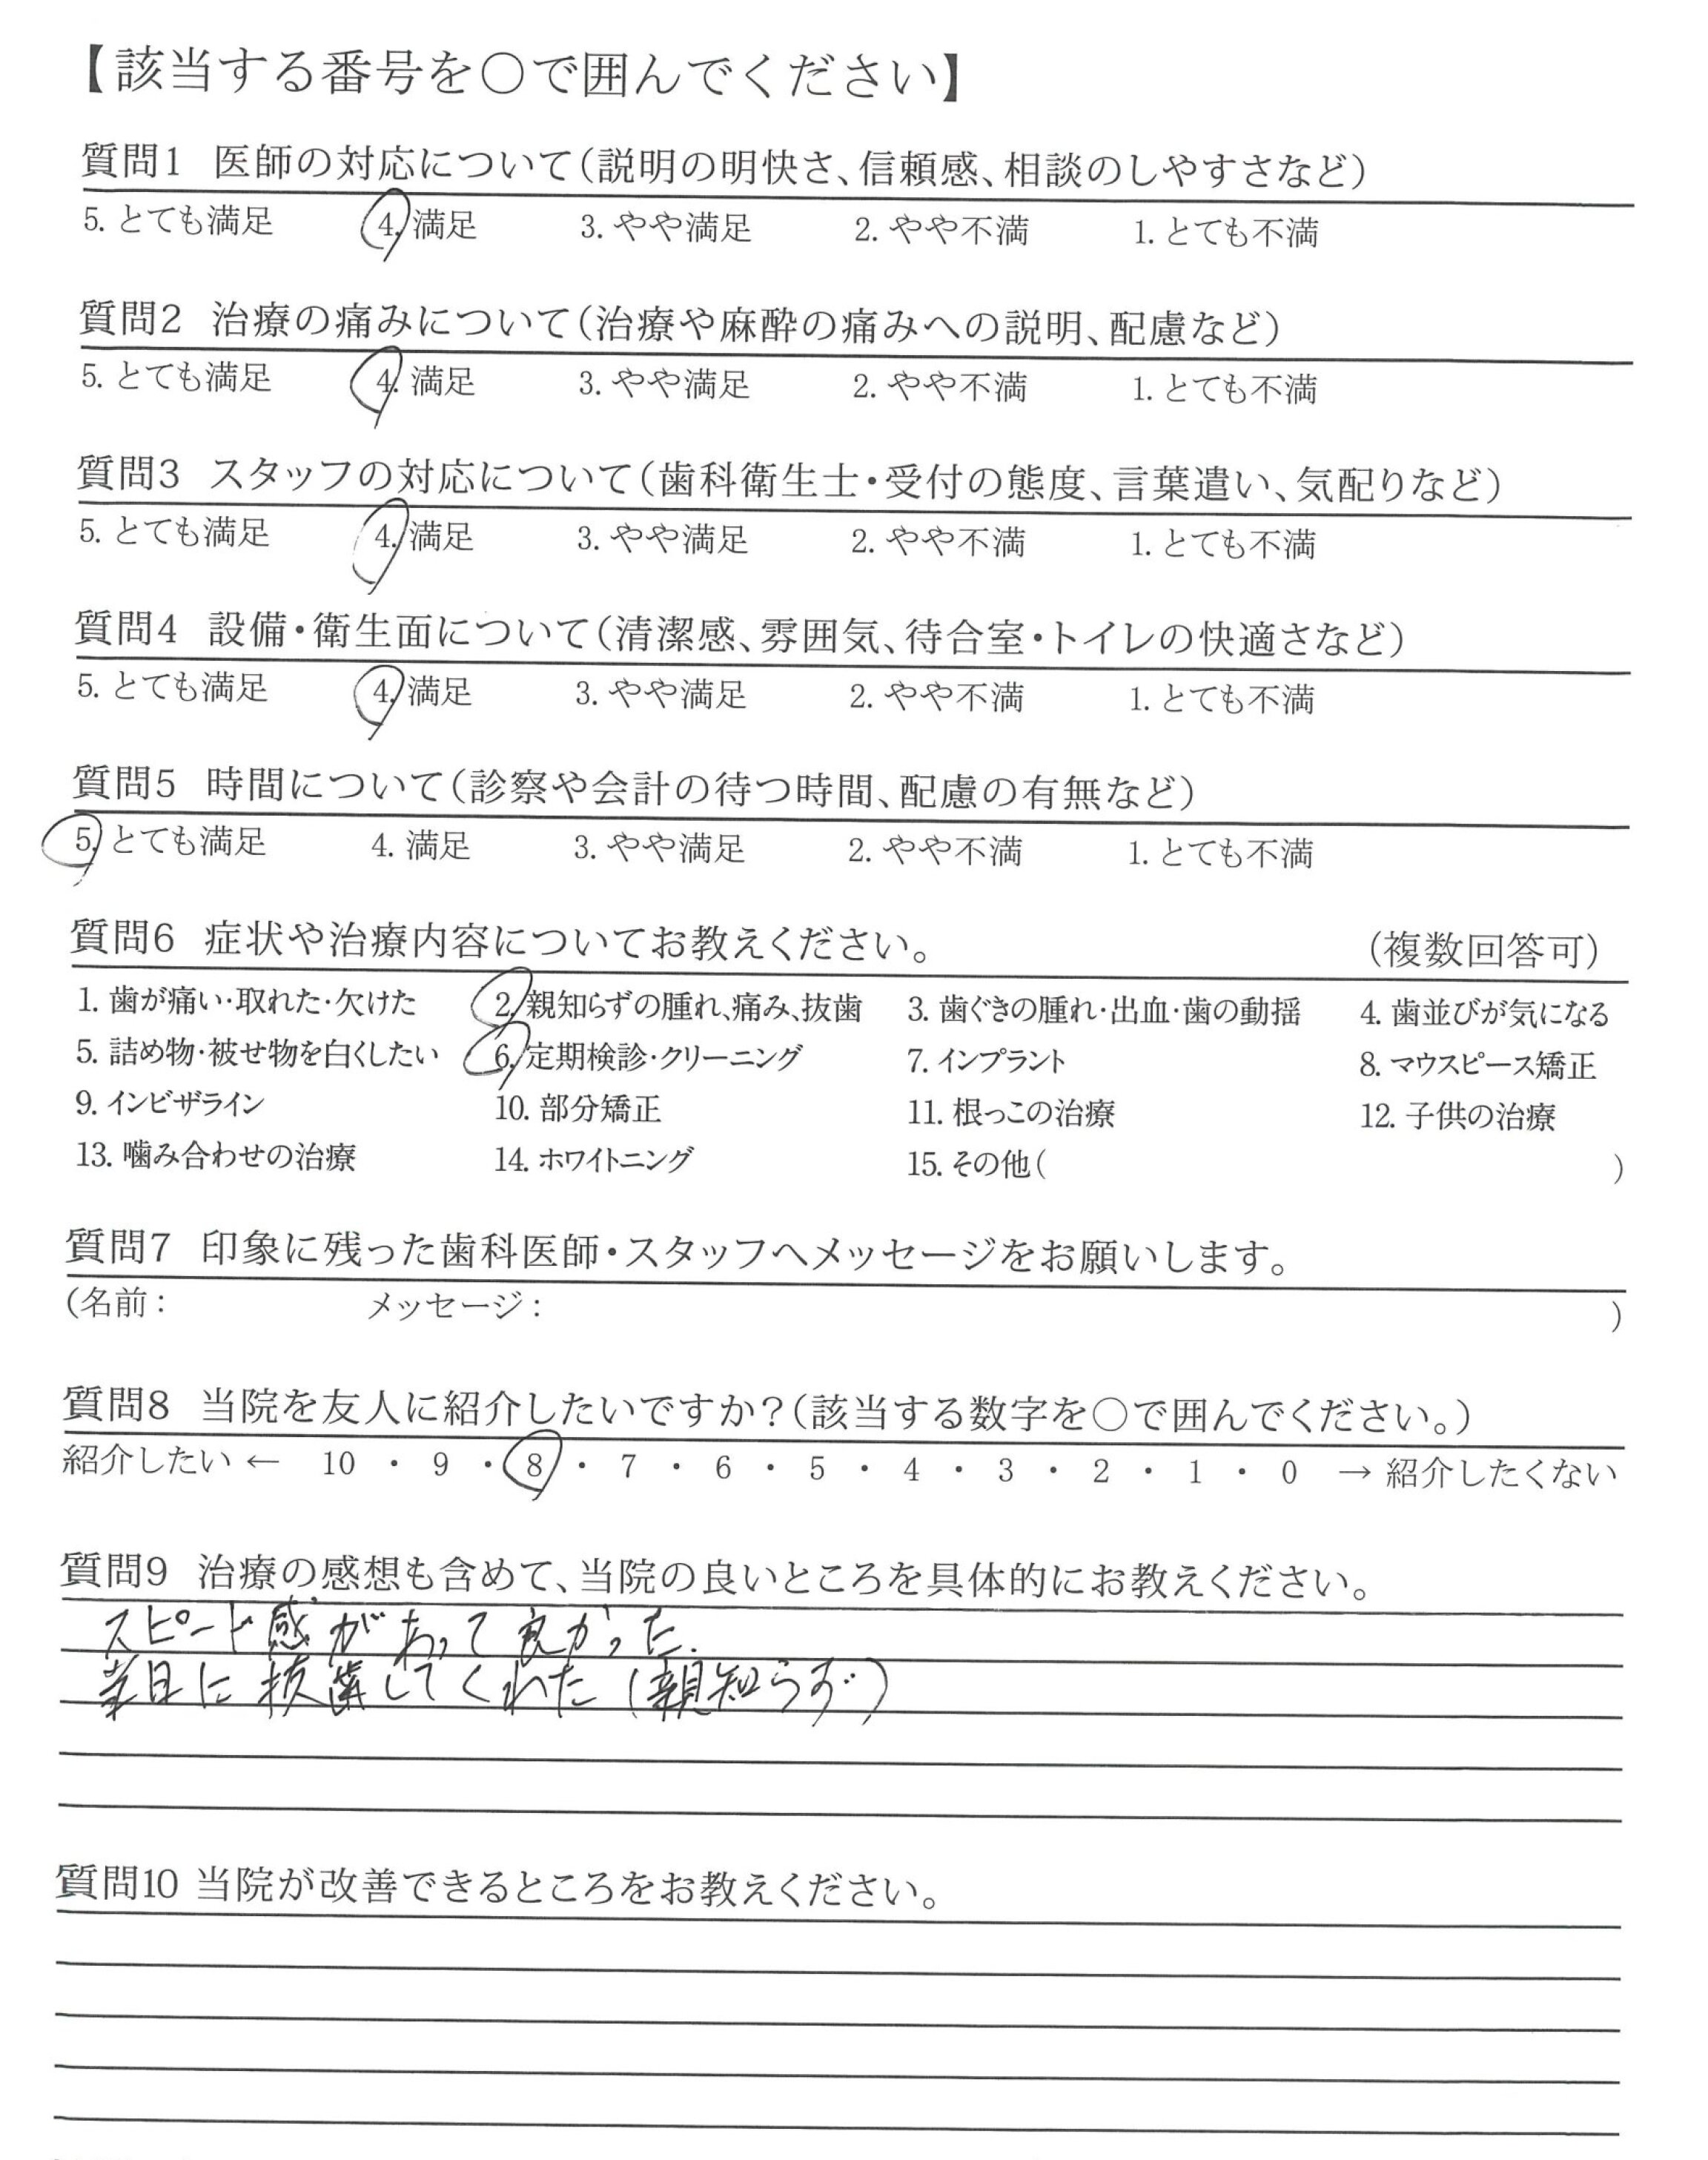 【該当する番号を○で囲んでください】
質問1 医師の対応について(説明の明快さ、信頼感、相談のしやすさなど)
5. とても満足 4. 満足 3. やや満足 2. やや不満 1. とても不満
質問2 治療の痛みについて(治療や麻酔の痛みへの説明、配慮など)
5. とても満足 4. 満足 3. やや満足 2. やや不満 1. とても不満
質問3 スタッフの対応について(歯科衛生士・受付の態度、言葉遣い、気配りなど)
5. とても満足 4. 満足 3. やや満足 2. やや不満 1. とても不満
質問4 設備・衛生面について(清潔感、雰囲気、待合室・トイレの快適さなど)
5. とても満足 4. 満足 3. やや満足 2. やや不満 1. とても不満
質問5 時間について(診察や会計の待つ時間、配慮の有無など)
5. とても満足 4. 満足 3. やや満足 2. やや不満 1. とても不満
質問6 症状や治療内容についてお教えください。 (複数回答可)
1. 歯が痛い・取れた・欠けた 2. 親知らずの腫れ、痛み、抜歯 3. 歯ぐきの腫れ・出血・歯の動揺 4. 歯並びが気になる
5. 詰め物・被せ物を白くしたい 6. 定期検診・クリーニング 7. インプラント 8. マウスピース矯正
9. インビザライン 10. 部分矯正 11. 根っこの治療 12. 子供の治療
13. 噛み合わせの治療 14. ホワイトニング 15. その他( )
質問7 印象に残った歯科医師・スタッフへメッセージをお願いします。
(名前: メッセージ: )
質問8 当院を友人に紹介したいですか?(該当する数字を○で囲んでください。)
紹介したい ← 10 ・ 9 ・ 8 ・ 7 ・ 6 ・ 5 ・ 4 ・ 3 ・ 2 ・ 1 ・ 0 → 紹介したくない
質問9 治療の感想も含めて、当院の良いところを具体的にお教えください。
スピード感があって良かった.
当日に抜歯してくれた(親知らず)
質問10 当院が改善できるところをお教えください。